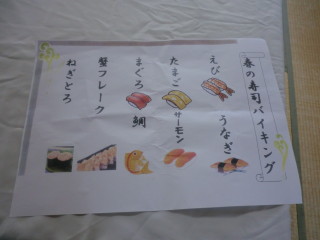 春の寿司バイキング
えび
うなぎ
たまご
サーモン
まぐろ
鯛
蟹フレーク
ねぎとろ